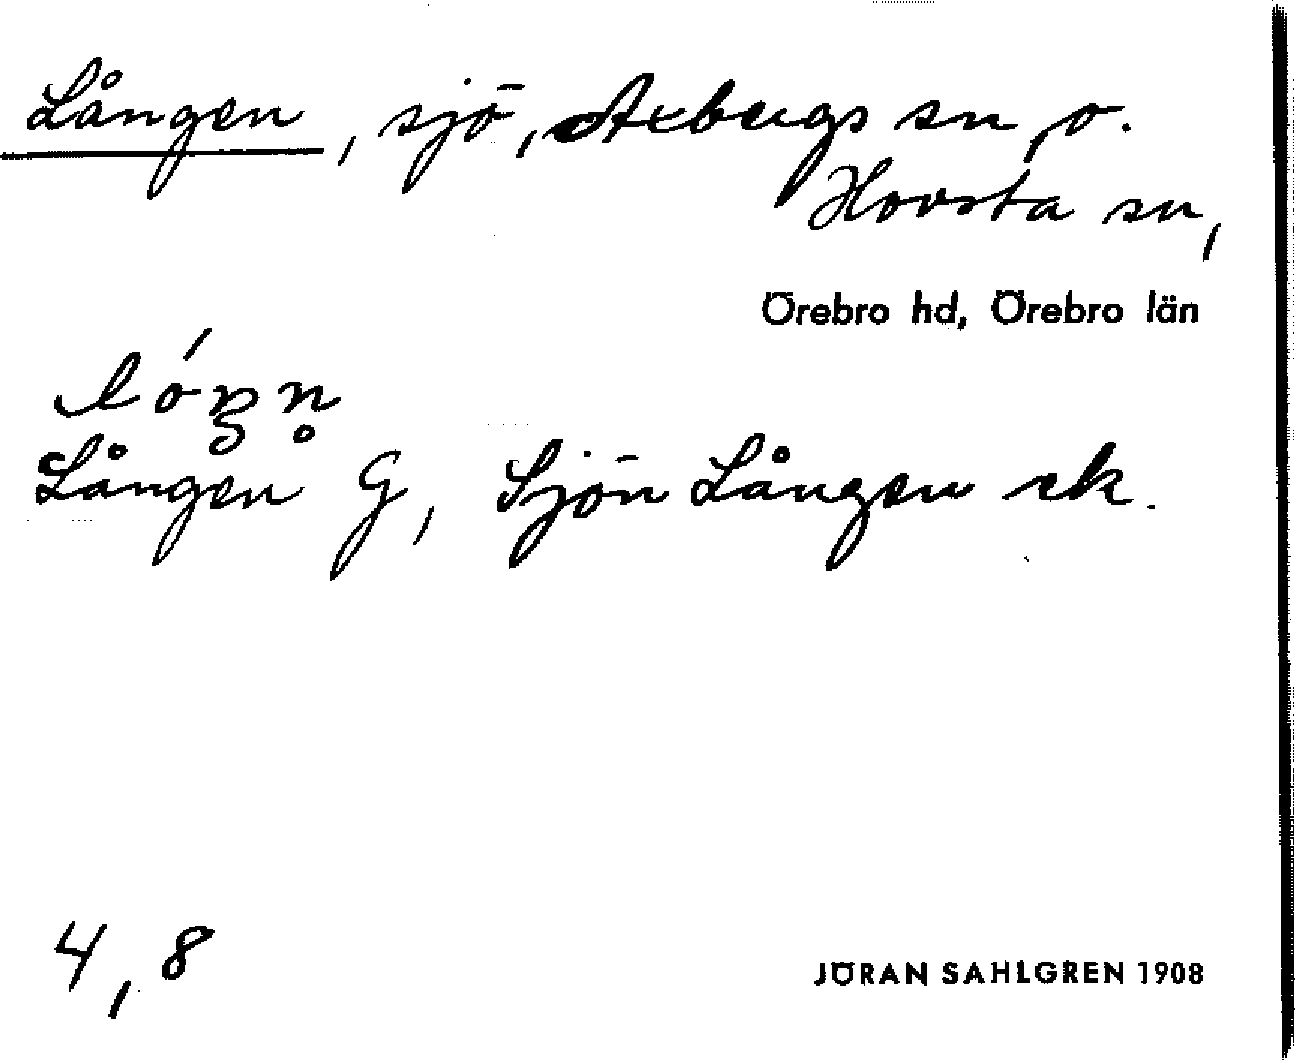 Lången, sjö, Axbergs sn, o.
Hovsta sn,
Örebro hd, Örebro län
Lången G, Sjön Lången ek.
4, 8
JÖRAN SAHLGREN 1908